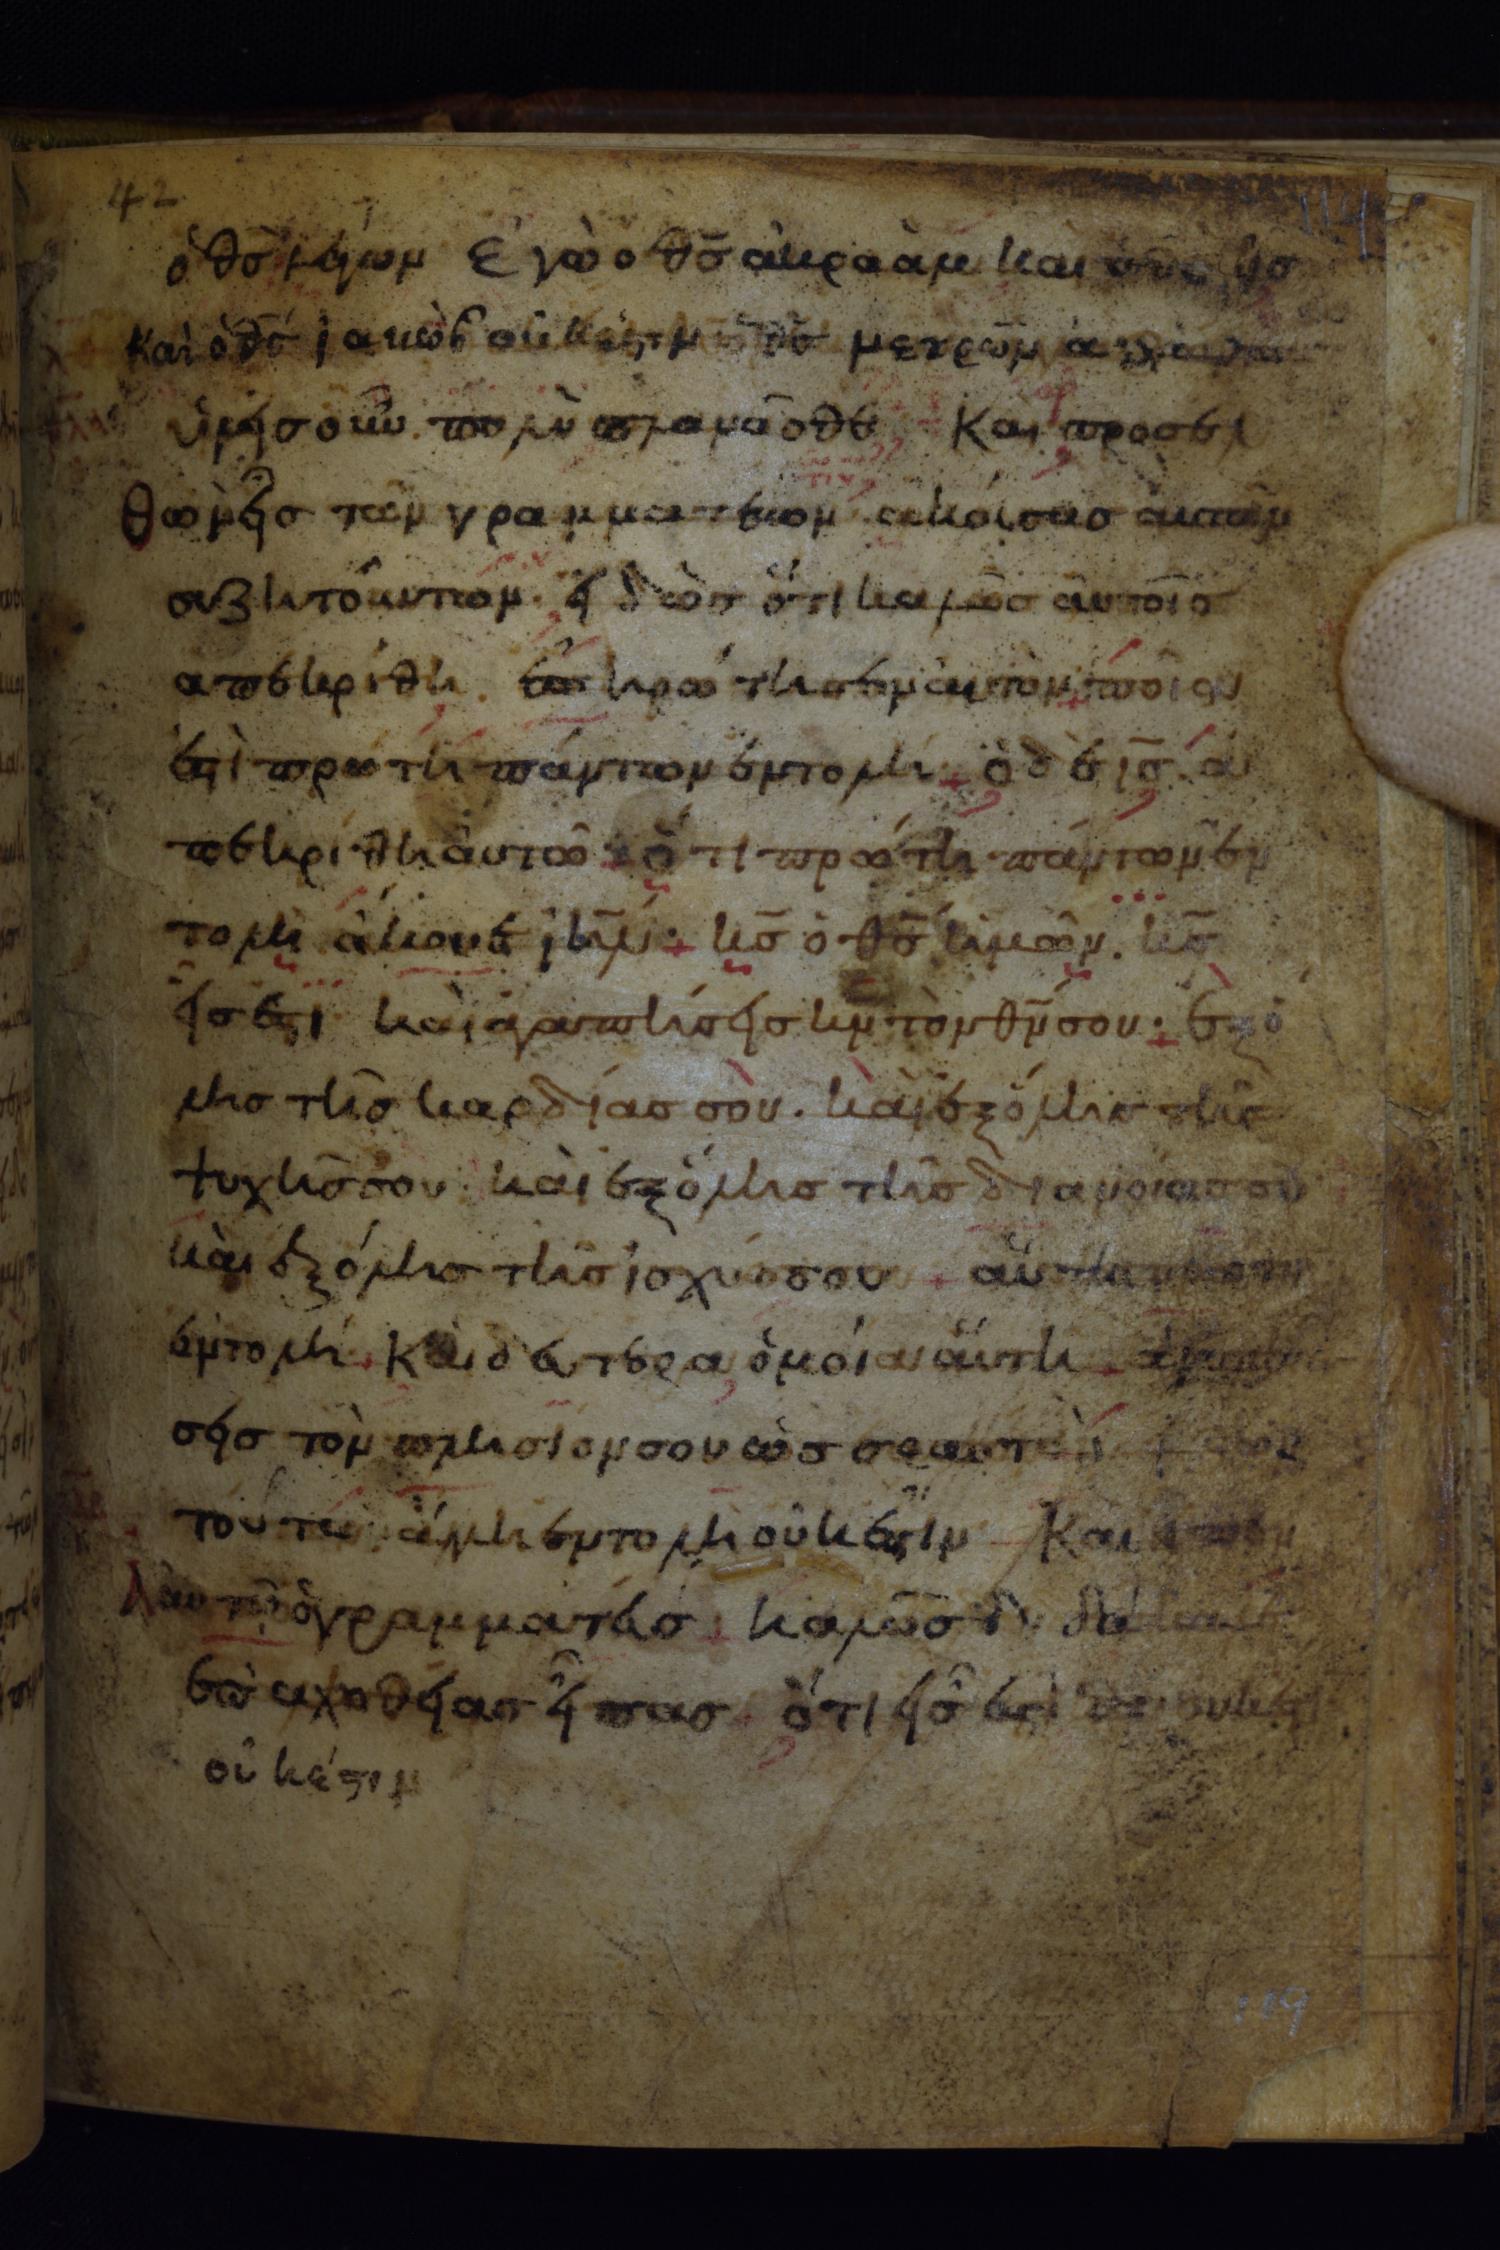 42
ὁ θς λέγων ἐγὼ ὁ θς ἀβραὰμ καὶ ὁ θς ἠσ
καὶ ὁ θς ἰακὼβ οὐκέστιν ὁ θς νεκρῶν ἀλλὰ
ὑμήσ οὖν πολὺ πλανᾶσθε Καὶ προσελ
θὼν ἧσ τῶν γραμματέων ἀκούσασ αὐτῶν
συζητούντων ἠδὼσ ὅτι καλῶσ αὐτοῖσ
απεκρίθη ἐπηρώτησεν αὐτὸν ποῖα
ἐστὶ πρώτη πάντων ἐντολή ὁ δὲ ις α
πεκρίθη αὐτῶ ὅτι πρώτη πάντων ἐν
τολὴ ἄκουε ιηλ κς ὁ θς ἡμῶν κς
ἧσ ἐστι καὶ ἀγαπήσησ κν τὸν θν σου ἐξ ὅ
λησ τῆσ καρδίασ σου καὶ ἐξ ὅλησ τῆσ
ψυχῆσ σου καὶ ἐξ ὅλησ τῆσ διανοίασ σου
καὶ ἐξ ὅλησ τῆσ ἰσχύοσ σου αὕτη πρώτη
ἐντολή Καὶ δευτέρα ὁμοία αὕτη ἀγαπή
σησ τὸν πλησίον σου ὡσ σεαυτὸν
τούτων ἄλλη ἐντολὴ οὐκέστιν Καὶ εἶπεν
αὐτῶ ὁ γραμματεύσ καλῶσ διδάσκαλε
ἐπ αληθήασ ἦπασ ὅτι ἧσ ἐστὶ
οὐκέστιν
119